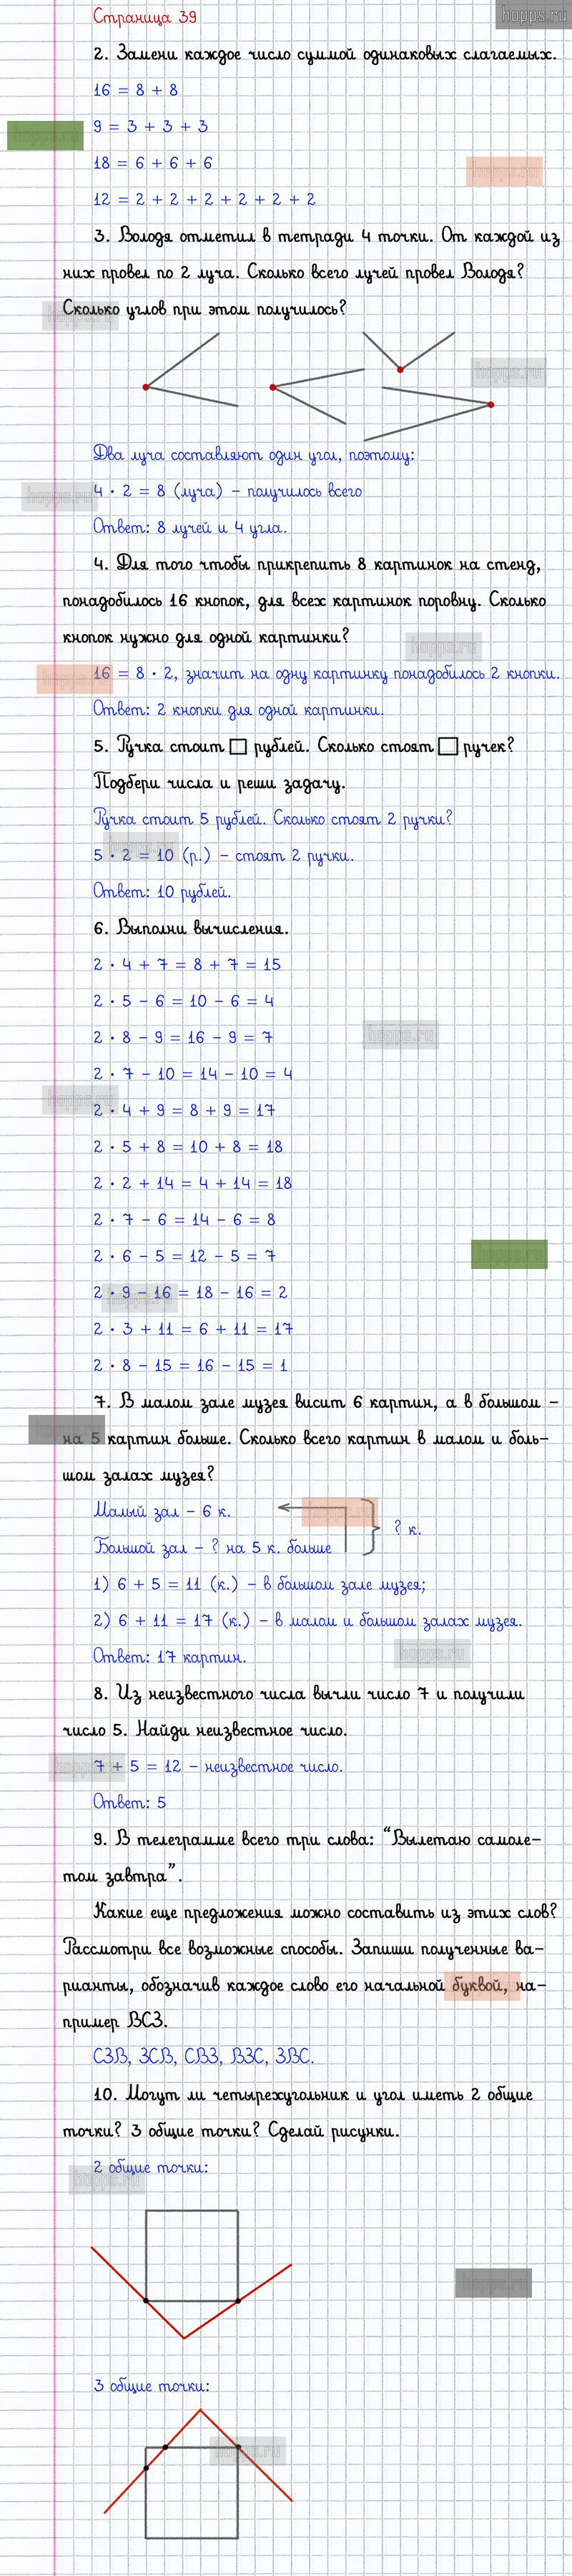 Страница 39
hopps.ru
2. Замени каждое число суммой одинаковых слагаемых.
16 = 8 + 8
9 = 3 + 3 + 3
hopps.ru
18 = 6 + 6 + 6
hopps.ru
12 = 2 + 2 + 2 + 2 + 2 + 2
3. Володя отметил в тетради 4 точки. От каждой из
них провел по 2 луча. Сколько всего лучей провел Володя?
Сколько углов при этом получилось?
hopps.ru
hopps.ru
Два луча составляют один угол, поэтому:
4 · 2 = 8 (луча) – получилось всего
hopps.ru
Ответ: 8 лучей и 4 угла.
4. Для того чтобы прикрепить 8 картинок на стенд,
понадобилось 16 кнопок, для всех картинок поровну. Сколько
кнопок нужно для одной картинки?
hopps.ru
16 = 8 · 2, значит на одну картинку понадобилось 2 кнопки.
hopps.ru
Ответ: 2 кнопки для одной картинки.
5. Ручка стоит □ рублей. Сколько стоят □ ручек?
Подбери числа и реши задачу.
Ручка стоит 5 рублей. Сколько стоят 2 ручки?
hopps.ru
5 · 2 = 10 (р.) – стоят 2 ручки.
Ответ: 10 рублей.
6. Выполни вычисления.
2 · 4 + 7 = 8 + 7 = 15
2 · 5 – 6 = 10 – 6 = 4
2 · 8 – 9 = 16 – 9 = 7
hopps.ru
2 · 7 – 10 = 14 – 10 = 4
hopps.ru
2 · 4 + 9 = 8 + 9 = 17
2 · 5 + 8 = 10 + 8 = 18
2 · 2 + 14 = 4 + 14 = 18
2 · 7 – 6 = 14 – 6 = 8
2 · 6 – 5 = 12 – 5 = 7
hopps.ru
2 · 9 – 16 = 18 – 16 = 2
hopps.ru
2 · 3 + 11 = 6 + 11 = 17
2 · 8 – 15 = 16 – 15 = 1
7. В малом зале музея висит 6 картин, а в большом –
hopps.ru
на 5 картин больше. Сколько всего картин в малом и боль–
шом залах музея?
Малый зал – 6 к.
hopps.ru
? к.
Большой зал – ? на 5 к. больше
1) 6 + 5 = 11 (к.) – в большом зале музея;
2) 6 + 11 = 17 (к.) – в малом и большом залах музея.
Ответ: 17 картин.
hopps.ru
8. Из неизвестного числа вычли число 7 и получили
число 5. Найди неизвестное число.
7 + 5 = 12 – неизвестное число.
hopps.ru
Ответ: 5
9. В телеграмме всего три слова: “Вылетаю самоле–
том завтра”.
Какие еще предложения можно составить из этих слов?
Рассмотри все возможные способы. Запиши полученные ва–
рианты, обозначив каждое слово его начальной буквой, на–
пример ВСЗ.
СЗВ, ЗСВ, СВЗ, ВЗС, ЗВС.
10. Могут ли четырехугольник и угол иметь 2 общие
точки? 3 общие точки? Сделай рисунки.
2 общие точки:
hopps.ru
hopps.ru
3 общие точки:
hopps.ru